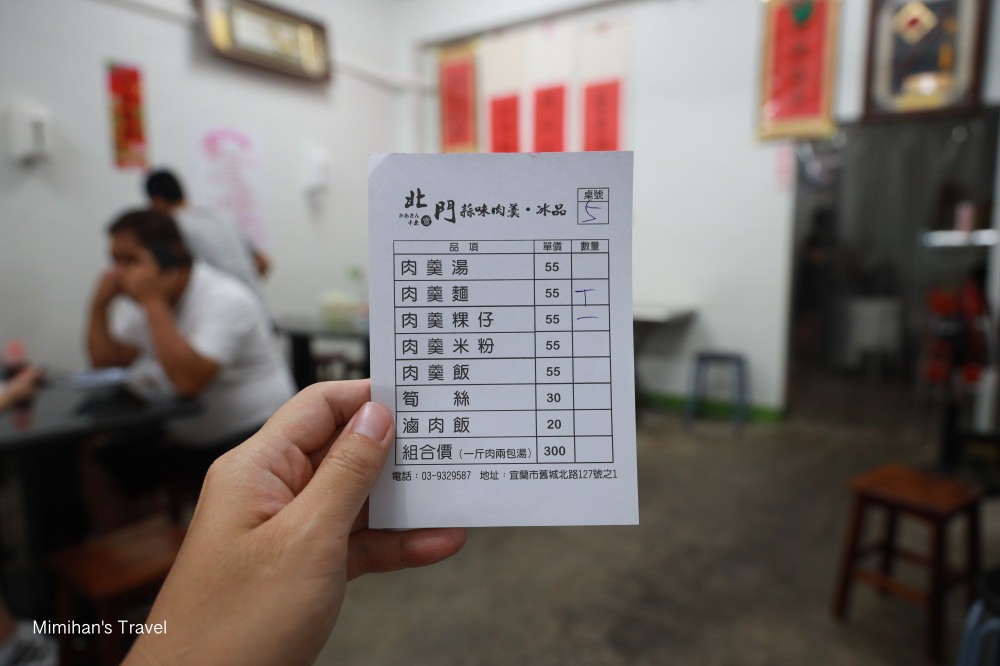 北門 蒜味肉羹・冰品
桌號
5
品項 單價 數量
肉羹湯 55
肉羹麵 55 T
肉羹粿仔 55 一
肉羹米粉 55
肉羹飯 55
筍絲 30
滷肉飯 20
組合價（一斤肉兩包湯） 300
電話：03-9329587 地址：宜蘭市舊城北路127號之1
Mimihan's Travel